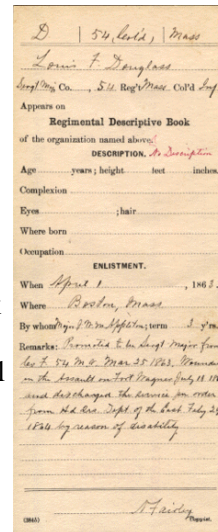 D | 54 Col'd, | Mass
Louis F. Douglass
Sergt Maj Co. , 54 Reg't Mass. Col'd Inf
Appears on
Regimental Descriptive Book
of the organization named above.
DESCRIPTION. No Description
Age years; height feet inches.
Complexion
Eyes ; hair
Where born
Occupation
ENLISTMENT.
When April 1 , 1863.
Where Boston, Mass
By whom Maj J. W. M. Appleton; term 3 y'rs.
Remarks: Promoted to be Sergt Major from
Co F. 54 M. V. Mar. 25 1863. Wounded
in the Assault on Fort Wagner July 18
and discharged the service pr order
from Hd Qrs. Dept. of the East Feby 29
1864 by reason of disability
Copyist.